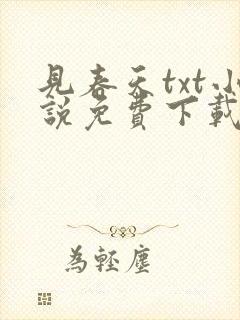 見春天txt小
說免費下載
為輕塵